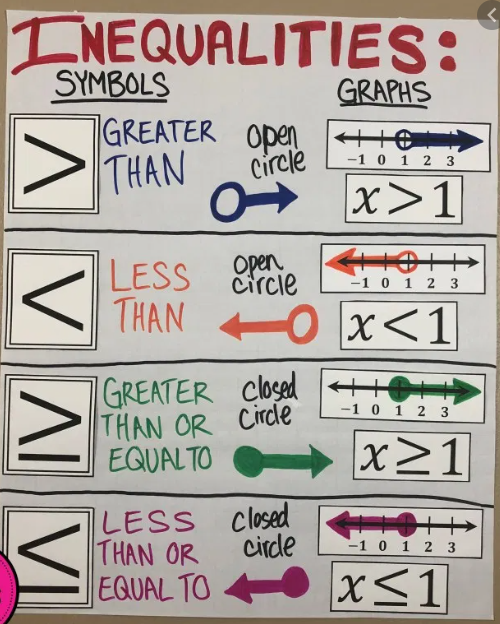 INEQUALITIES:
SYMBOLS
GRAPHS
>
GREATER
THAN
open
circle
-1 0 1 2 3
x>1
<
LESS
THAN
open
circle
-1 0 1 2 3
x<1
≥
GREATER
THAN OR
EQUAL TO
closed
circle
-1 0 1 2 3
x≥1
≤
LESS
THAN OR
EQUAL TO
closed
circle
-1 0 1 2 3
x≤1